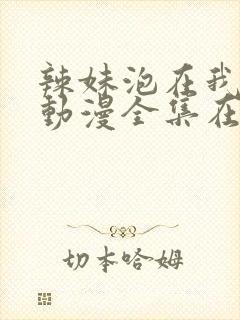 辣妹泡在我
動漫全集在
切本哈姆